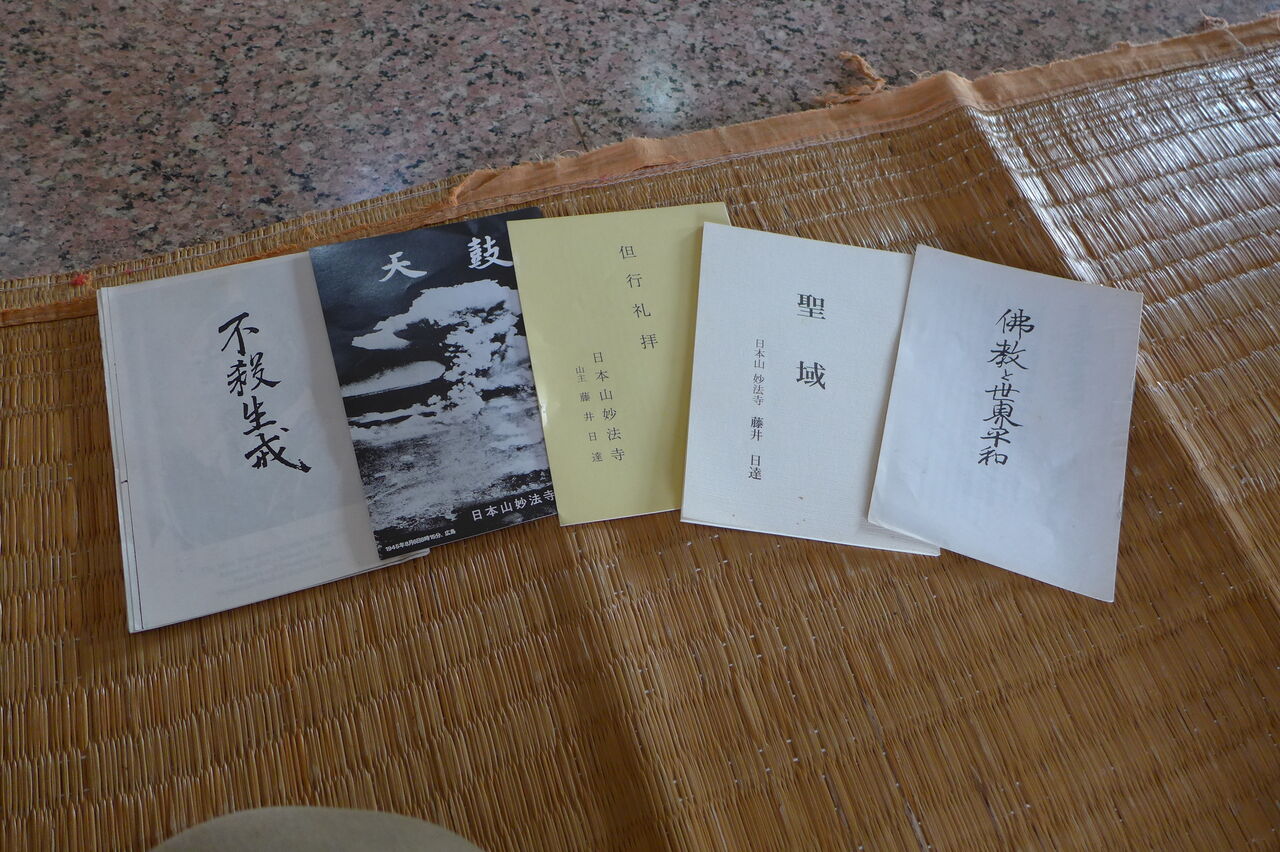 不殺生戒
天鼓
日本山妙法寺
1945年8月6日8時15分、広島
但行礼拝
日本山妙法寺
山主 藤井日達
聖域
日本山妙法寺 藤井日達
佛教と世界平和